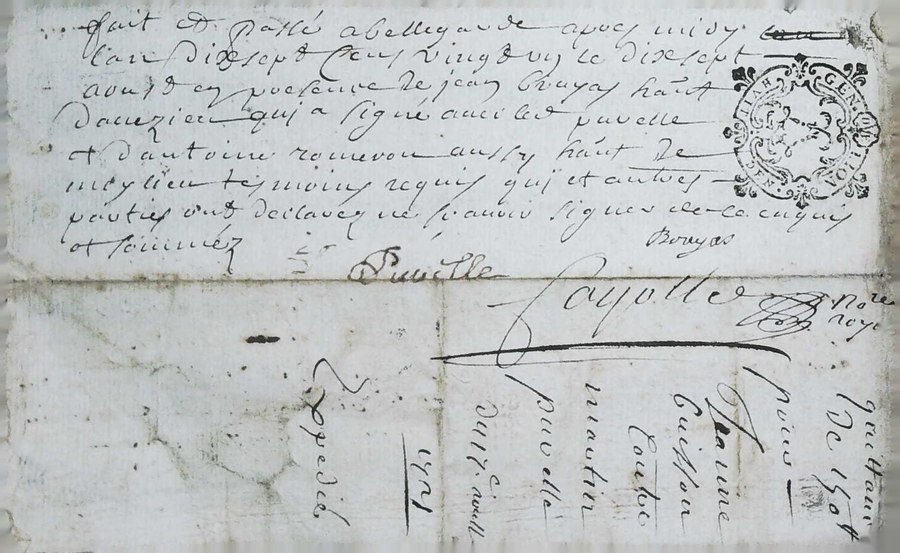 fait et passé a bellegarde apres midy
l'an dixsept cens vingt un le dixsept
aoust en presence de jean bruyas hant
d'auezieu qui a signé auec led puvelle
et d'antoine romeron aussy hant de
meylieu tesmoins requis qui et autres
parties ont declareq ne scavoir signer de ce enquis
et sommez
Bruyas
Puvelle
Cayolle
No.re
roya
GEN
quittance
De 150 tt
pour
Jeanne
Guillon
Contre
martin
puvelle
du 17e aoust
1721
Expedié